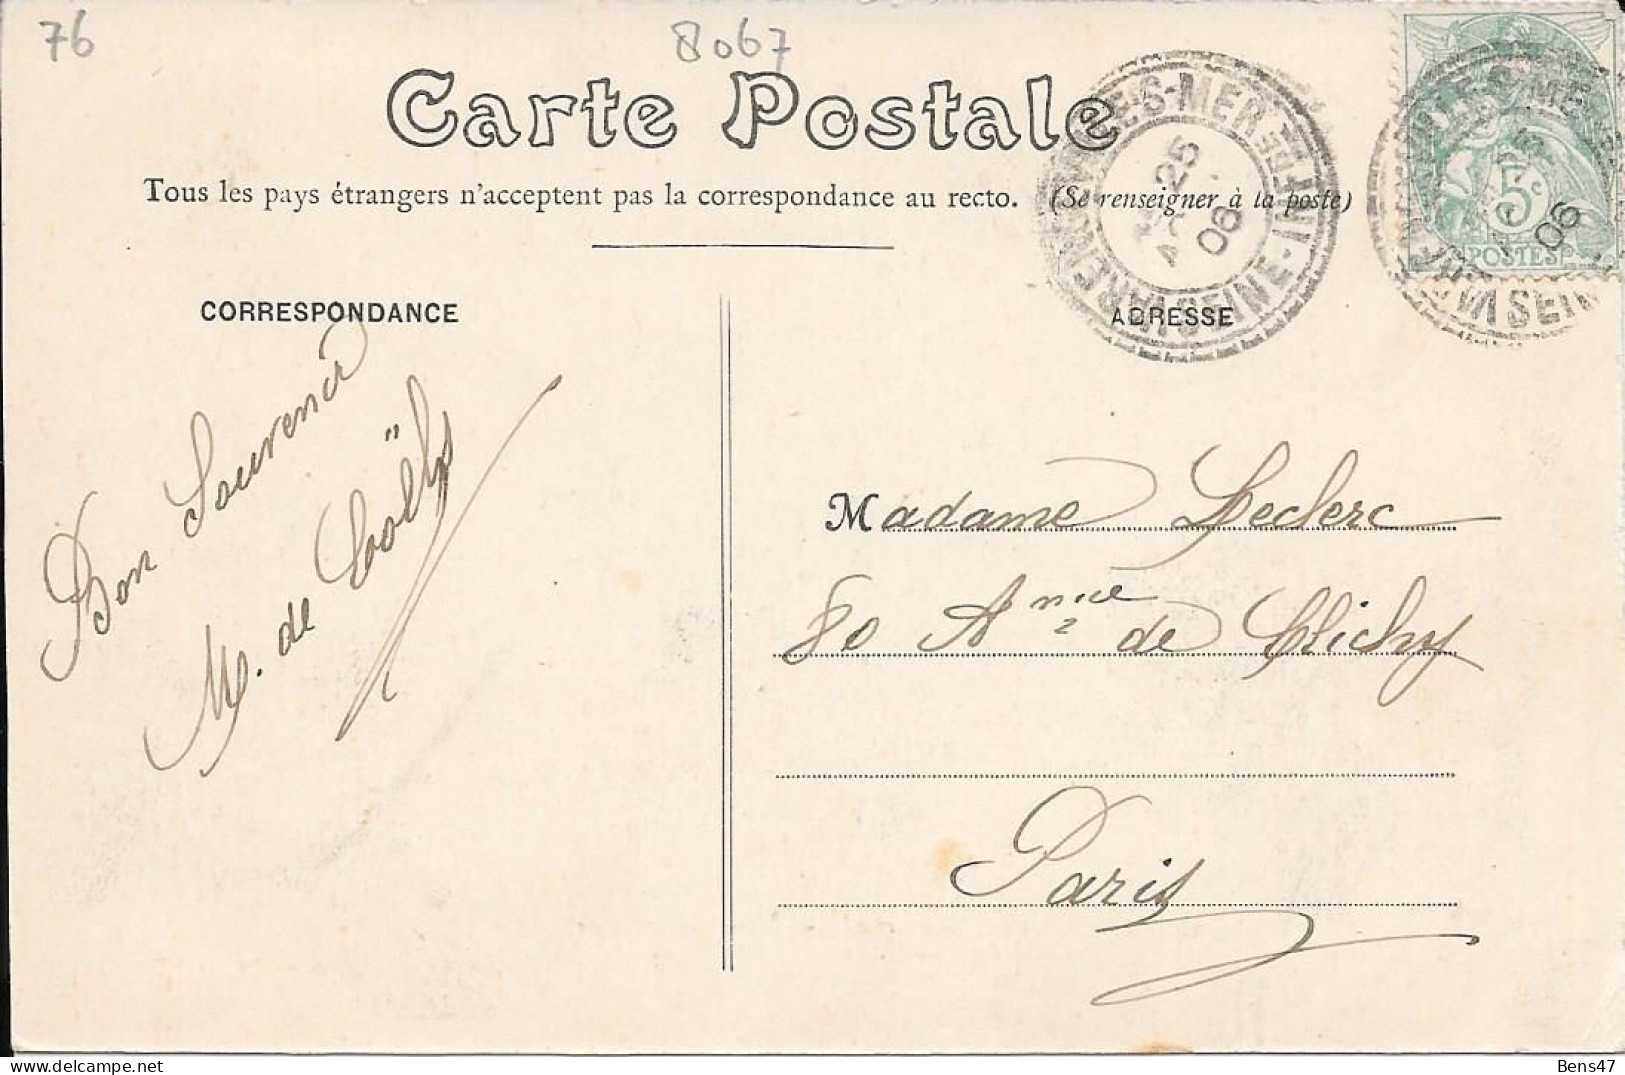 76
8067
Carte Postale
Tous les pays étrangers n'acceptent pas la correspondance au recto. (Se renseigner à la poste)
VARENGEVILLE-S-MER
SEINE-INFRE
25
06
5c
POSTES
06
CORRESPONDANCE
ADRESSE
Bon Souvenir
M. de
Madame Leclerc
80 Anue de Clichy
Paris
Bens47